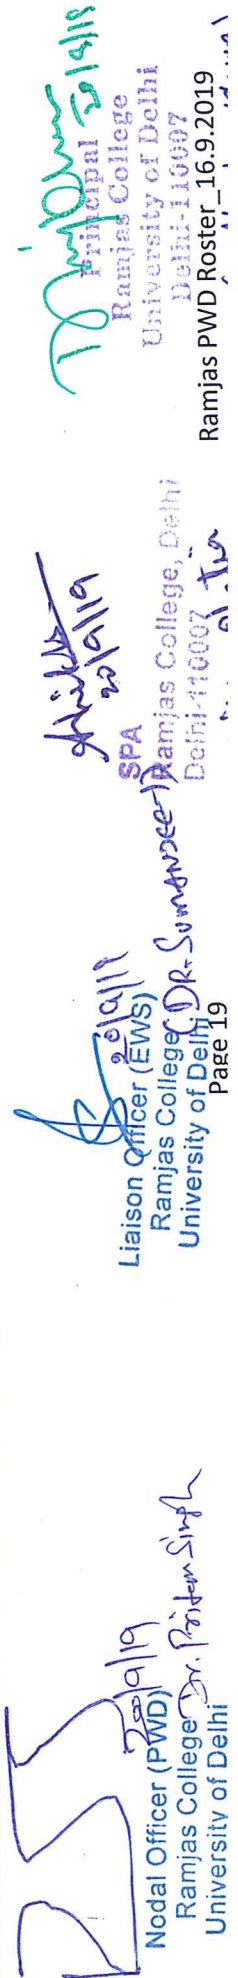 20/9/19
Nodal Officer (PWD)
Ramjas College Dr. Pritam Singh
University of Delhi
20/9/19
Liaison Officer (EWS)
Ramjas College
University of Delhi
Page 19
20/9/19
SPA
Ramjas College, Delhi
Delhi-110007
20/9/19
Principal
Ramjas College
University of Delhi
Delhi-110007
Ramjas PWD Roster_16.9.2019